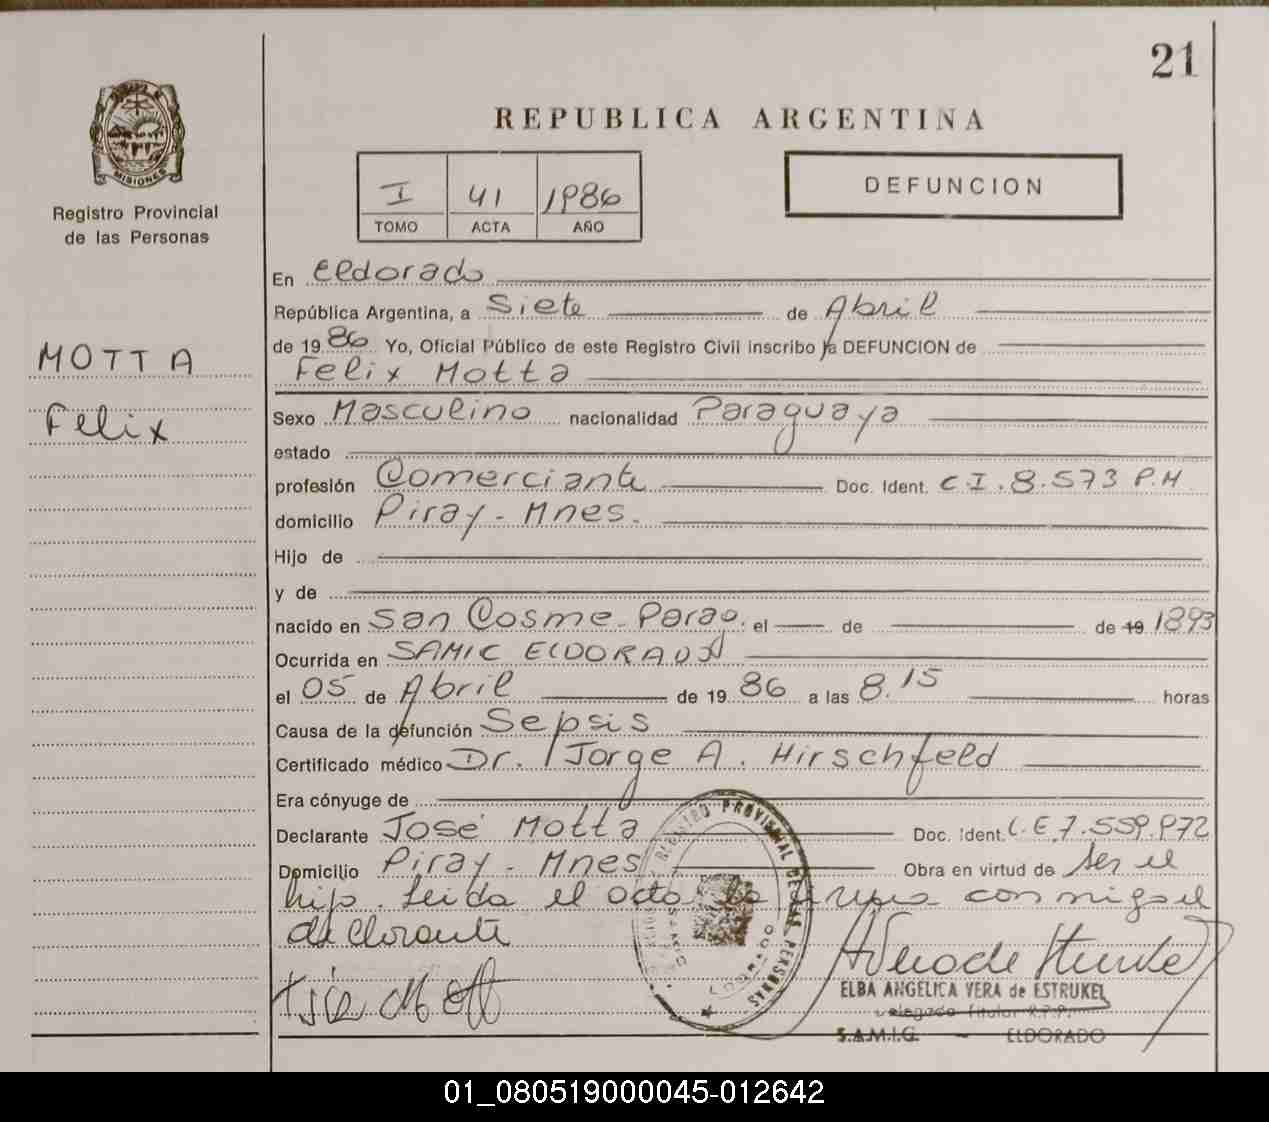 21
MISIONES
Registro Provincial
de las Personas
REPUBLICA ARGENTINA
I 41 1986
TOMO ACTA AÑO
DEFUNCION
MOTTA
Felix
En Eldorado
República Argentina, a Siete de Abril
de 1986 Yo, Oficial Público de este Registro Civil inscribo la DEFUNCION de
Felix Motta
Sexo Masculino nacionalidad Paraguaya
estado
profesión Comerciante Doc. Ident. C.I. 8.573 P.M
domicilio Piray - Mnes.
Hijo de
y de
nacido en San Cosme - Parag. el de de 19 1893
Ocurrida en SAMIC ELDORADO
el 05 de Abril de 1986 a las 8.15 horas
Causa de la defunción Sepsis
Certificado médico Dr. Jorge A. Hirschfeld
Era cónyuge de
Declarante José Motta Doc. Ident. L.E. 7.559.972
Domicilio Piray - Mnes Obra en virtud de Ser el
hijo. Leida el acta la firma conmigo el
declarante
REGISTRO PROVINCIAL DE LAS PERSONAS
ELBA ANGELICA VERA de ESTRUKEL
Delegada Titular R.P.P.
S.A.M.I.C. - ELDORADO
01_080519000045-012642